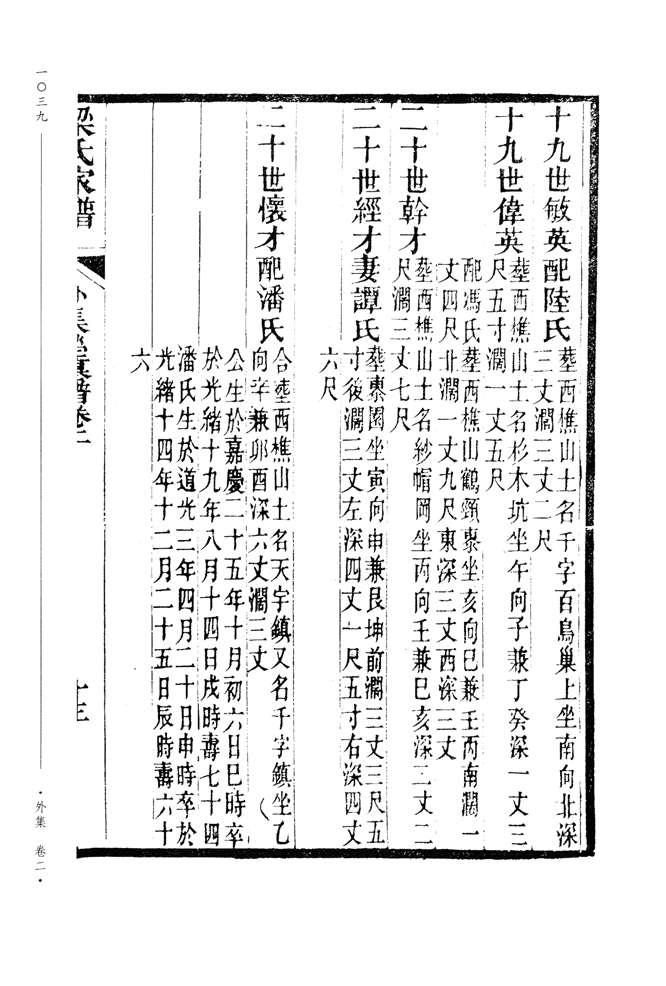 十九世敏英配陸氏
葬西樵山土名千字百鳥巢上坐南向北深
三丈濶三丈二尺
十九世偉英
葬西樵山土名杉木坑坐午向子兼丁癸深一丈三
尺五寸濶一丈五尺
配馮氏葬西樵山鶴頸寨坐亥向巳兼壬丙南濶一
丈四尺北濶一丈九尺東深三丈西深三丈
二十世幹才
葬西樵山土名紗帽岡坐丙向壬兼巳亥深二丈二
尺濶三丈七尺
二十世經才妻譚氏
葬棗園坐寅向申兼艮坤前濶三丈三尺五
寸後濶三丈左深四丈一尺五寸右深四丈
六尺
二十世懷才配潘氏
合葬西樵山土名天字鎮又名千字鎮坐乙
向辛兼卯酉深六丈濶三丈
公生於嘉慶二十五年十月初六日巳時卒
於光緒十九年八月十四日戌時壽七十四
潘氏生於道光三年四月二十日申時卒於
光緒十四年十二月二十五日辰時壽六十
六
梁氏家譜
外集塋墓譜卷二
十三
一〇三九
·外集 卷二·